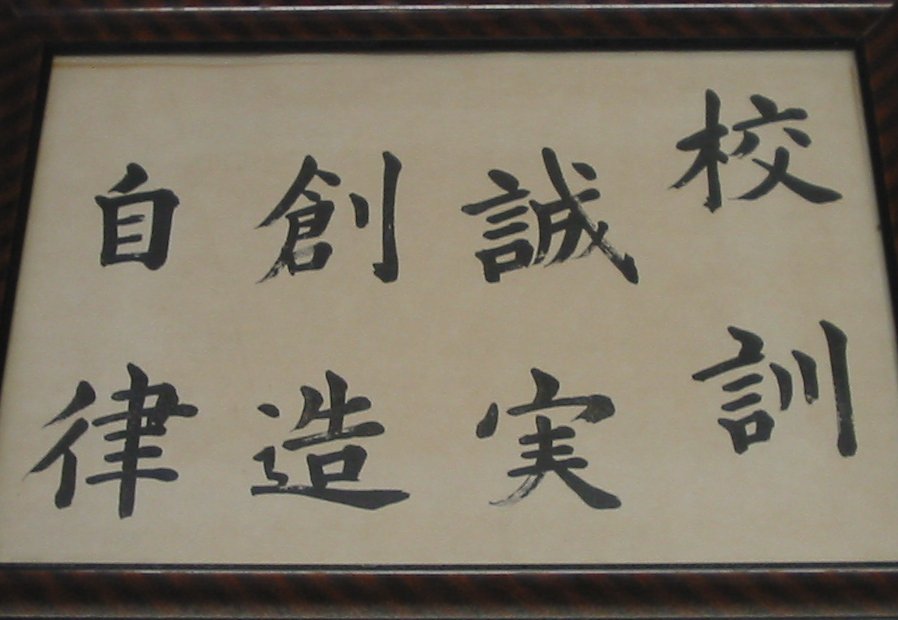 校訓
誠実
創造
自律